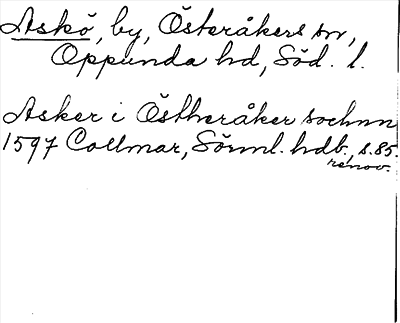 Askö, by, Österåkers sn,
Oppunda hd, Söd. l.
Asker i Östheråker sochnn
1597 Collmar, Sörml. hdb, s. 85.
renov.